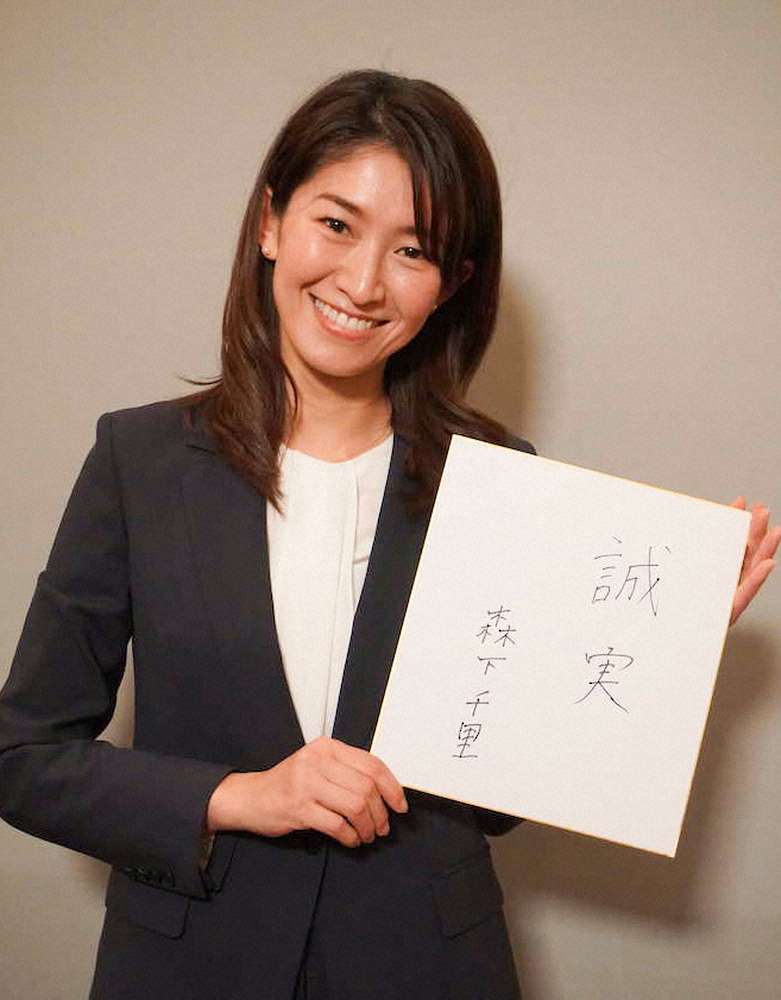 誠実
森下千里